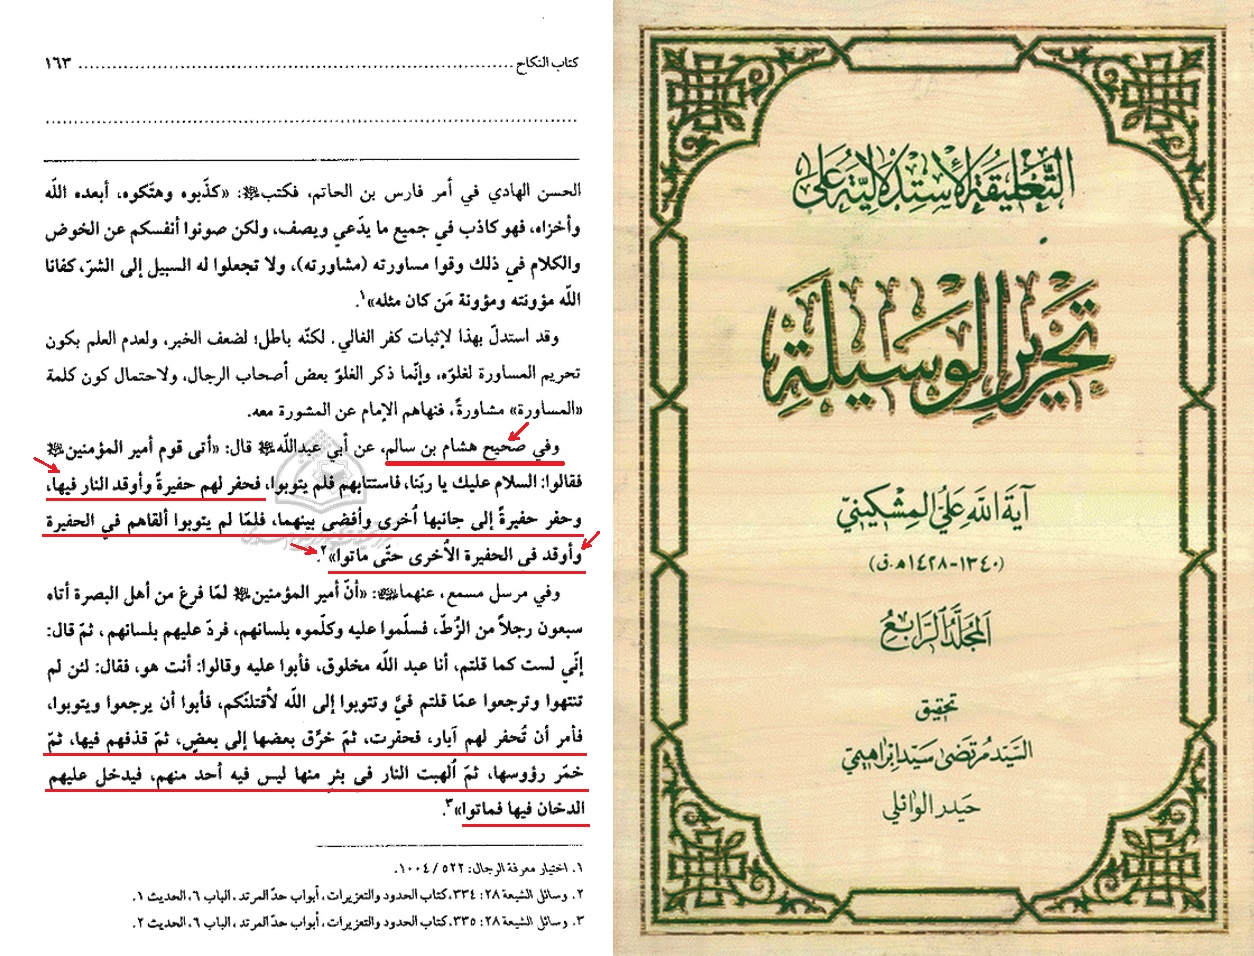 كتاب النكاح ........................................................................ ١٦٣
..............................................................................................
الحسن الهادي في أمر فارس بن الحاتم، فكتب﷼: «كذّبوه وهتّكوه، أبعده اللّه
وأخزاه، فهو كاذب في جميع ما يدّعي ويصف، ولكن صونوا أنفسكم عن الخوض
والكلام في ذلك وقوا مساورته (مشاورته)، ولا تجعلوا له السبيل إلى الشرّ، كفانا
اللّه مؤونته ومؤونة مَن كان مثله»١.
وقد استدلّ بهذا لإثبات كفر الغالي. لكنّه باطل؛ لضعف الخبر، ولعدم العلم بكون
تحريم المساورة لغلوّه، وإنّما ذكر الغلوّ بعض أصحاب الرجال، ولاحتمال كون كلمة
«المساورة» مشاورةً، فنهاهم الإمام عن المشورة معه.
وفي صحيح هشام بن سالم، عن أبي عبداللّه قال: «أتى قوم أمير المؤمنين
فقالوا: السلام عليك يا ربّنا، فاستتابهم فلم يتوبوا، فحفر لهم حفيرةً وأوقد النار فيها،
وحفر حفيرةً إلى جانبها اُخرى وأفضى بينهما، فلمّا لم يتوبوا ألقاهم في الحفيرة
وأوقد في الحفيرة الاُخرى حتّى ماتوا»٢.
وفي مرسل مسمع، عنهما: «أنّ أمير المؤمنين لمّا فرغ من أهل البصرة أتاه
سبعون رجلاً من الزُطّ، فسلّموا عليه وكلّموه بلسانهم، فردّ عليهم بلسانهم، ثمّ قال:
إنّي لست كما قلتم، أنا عبد اللّه مخلوق، فأبوا عليه وقالوا: أنت هو، فقال: لئن لم
تنتهوا وترجعوا عمّا قلتم فيَّ وتتوبوا إلى اللّه لأقتلنّكم، فأبوا أن يرجعوا ويتوبوا،
فأمر أن تُحفر لهم آبار، فحفرت، ثمّ خرّق بعضها إلى بعضٍ، ثمّ قذفهم فيها، ثمّ
خمّر رؤوسها، ثمّ اُلهبت النار في بئرٍ منها ليس فيه أحد منهم، فيدخل عليهم
الدخان فيها فماتوا»٣.
١. اختيار معرفة الرجال: ٥٢٢ / ١٠٠٤.
٢. وسائل الشيعة ٢٨: ٣٣٤، كتاب الحدود والتعزيرات، أبواب حدّ المرتد، الباب ٦، الحديث ١.
٣. وسائل الشيعة ٢٨: ٣٣٥، كتاب الحدود والتعزيرات، أبواب حدّ المرتد، الباب ٦، الحديث ٢.
التعليقة الاستدلالية على
تحرير الوسيلة
آية الله علي المشكيني
(١٣٤٠-١٤٢٨ه‍.ق)
المجلّد الرّابع
تحقيق
السيّد مرتضى سيّد إبراهيمي
حيدر الوائلي